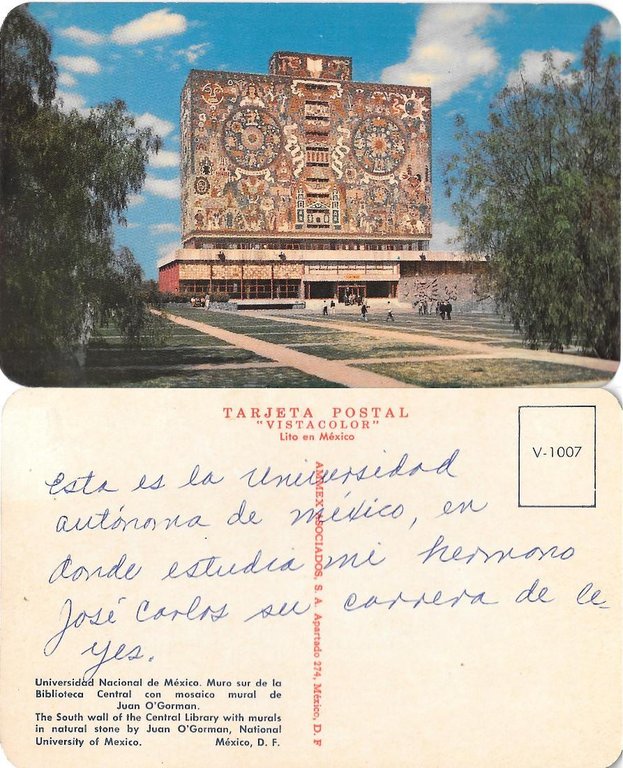 TARJETA POSTAL
"VISTACOLOR"
Lito en México
V-1007
Esta es la Universidad
autónoma de méxico, en
donde estudia mi hermano
José Carlos su carrera de le-
yes.
AMMEX ASOCIADOS, S. A. Apartado 274, México, D. F
Universidad Nacional de México. Muro sur de la
Biblioteca Central con mosaico mural de
Juan O'Gorman.
The South wall of the Central Library with murals
in natural stone by Juan O'Gorman, National
University of Mexico. México, D. F.